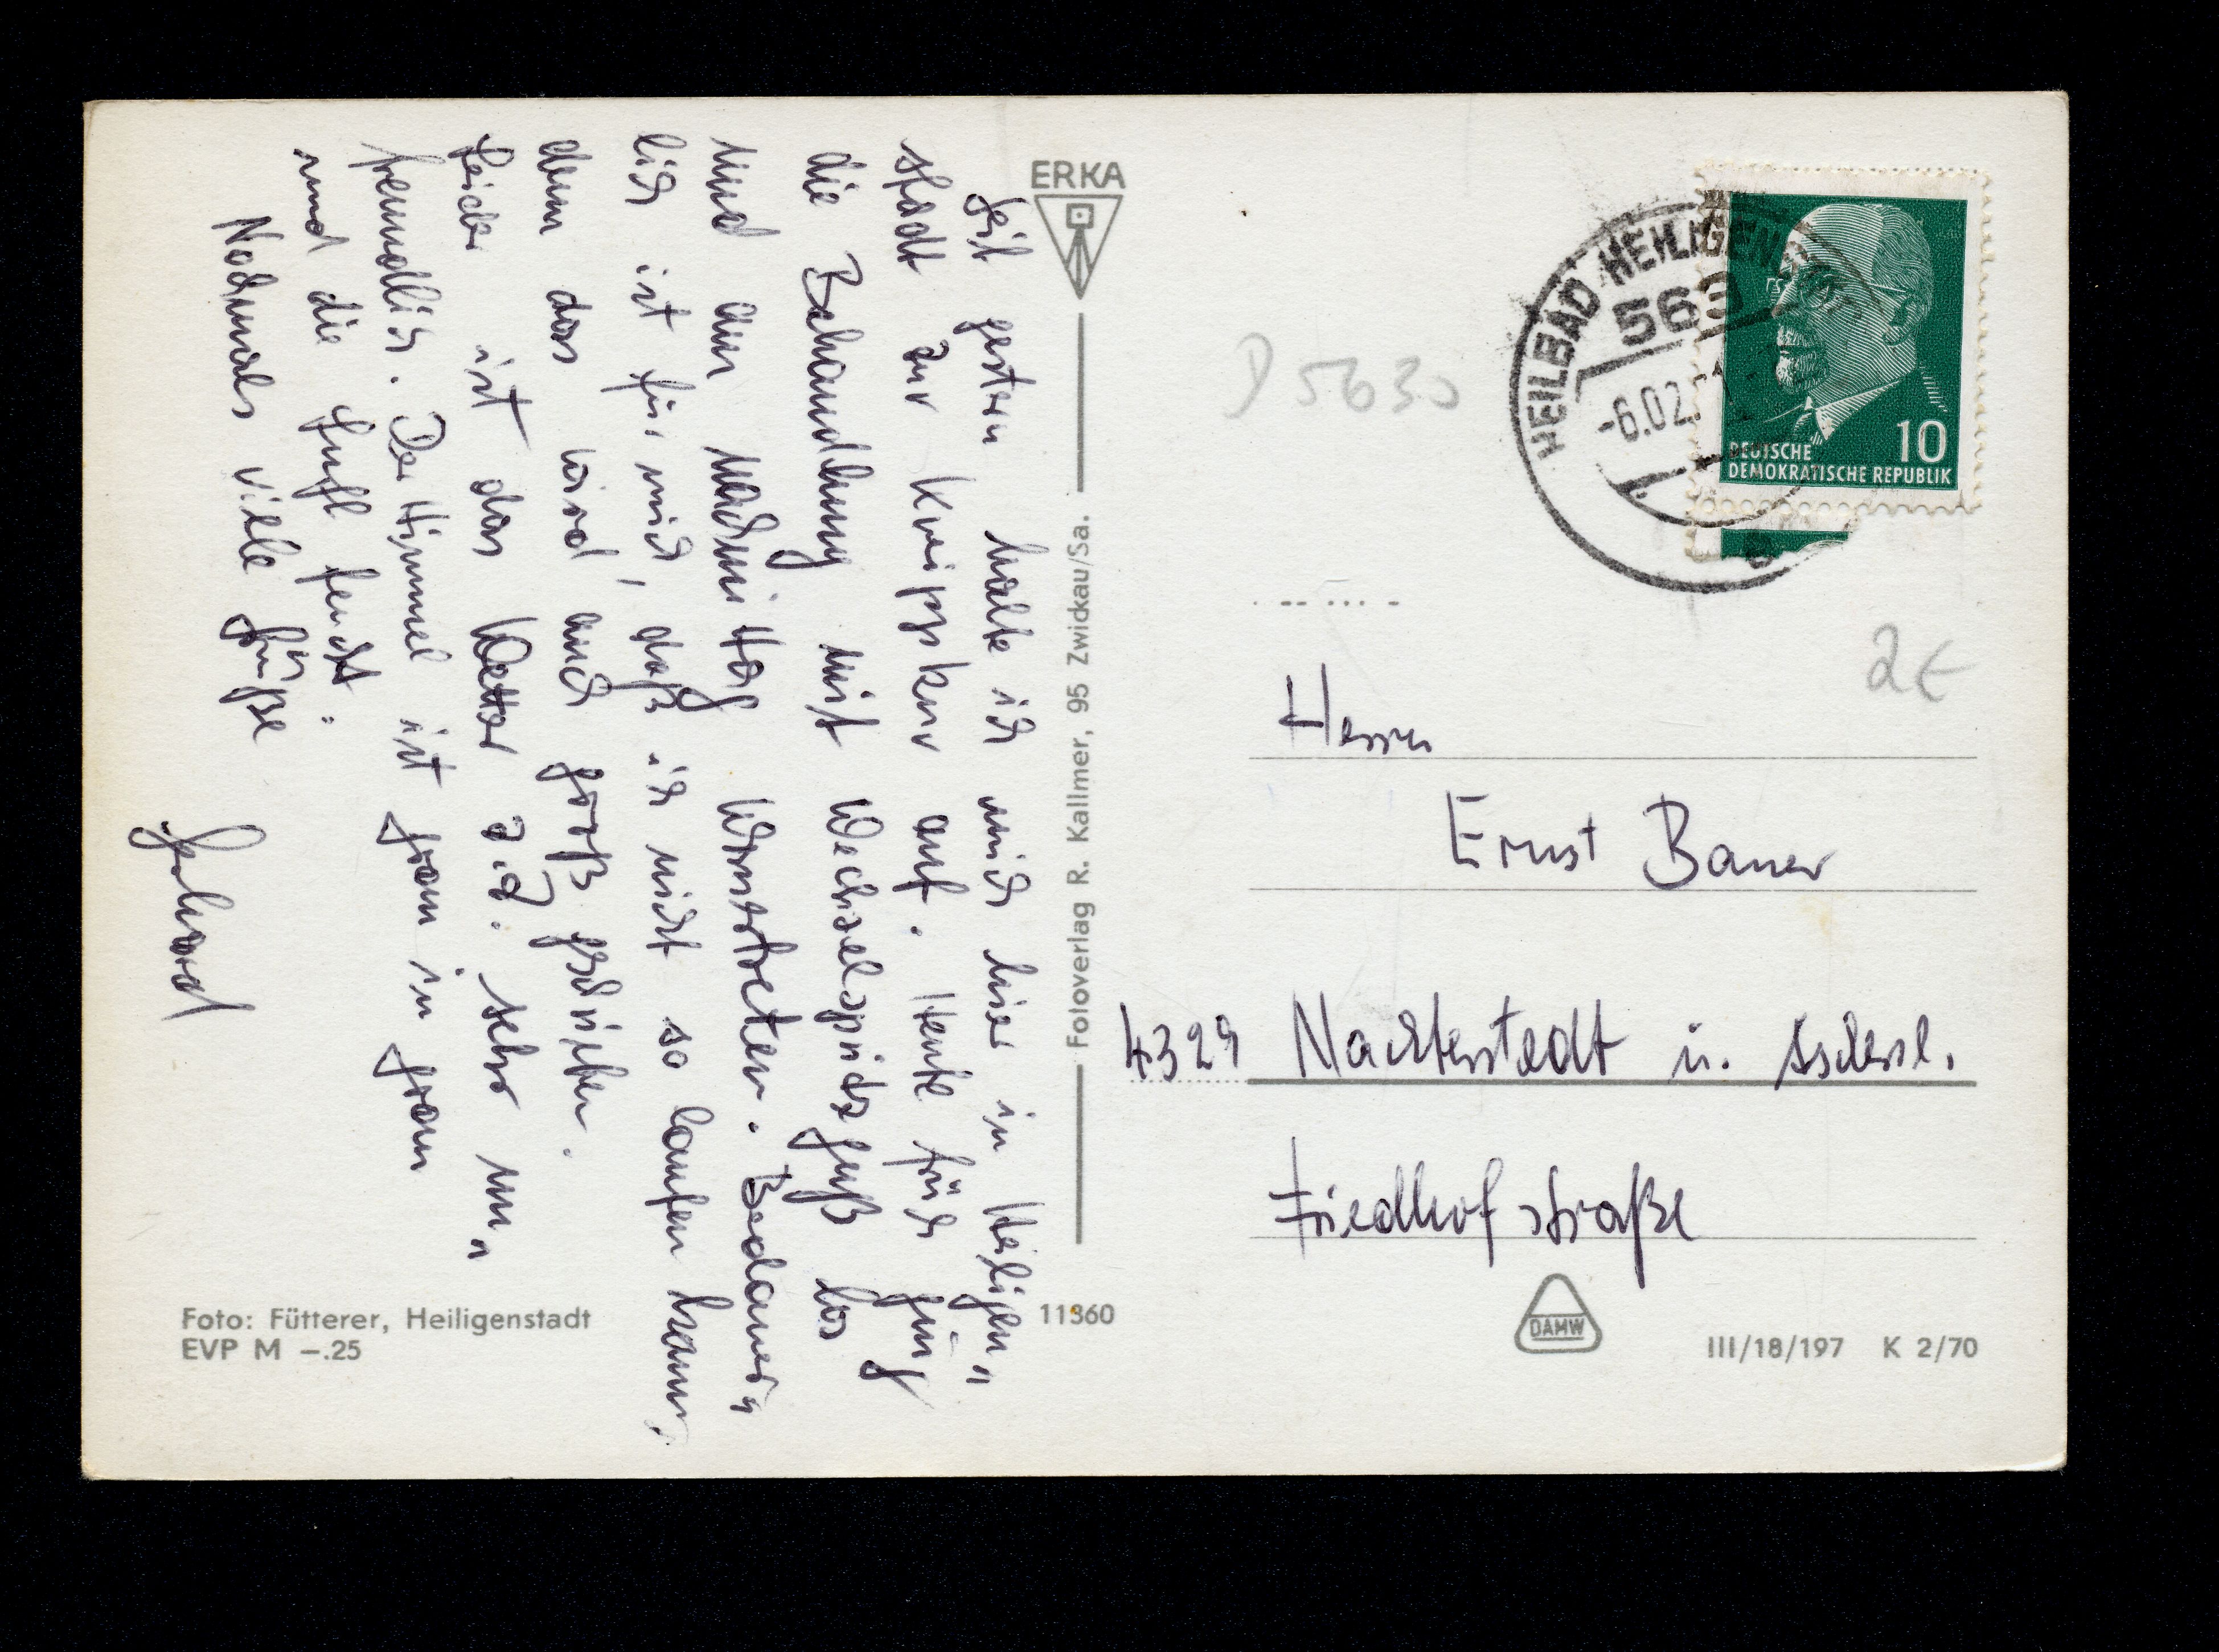 Seit gestern halte ich mich hier in Heiligen„
stadt zur Kneippkur auf. Heute früh ging
die Behandlung mit Wechselspritzguß los
und am Nachmittag Wassertreten. Bedauer„
lich ist für mich, daß ich nicht so laufen kann,
denn das wird auch groß geschrieben.
Leider ist das Wetter z.Z. sehr un„
freundlich. Der Himmel ist grau in grau
und die Luft feucht.
Nochmals viele Grüße
Gerhard
Foto: Fütterer, Heiligenstadt
EVP M –.25
ERKA
Fotoverlag R. Kallmer, 95 Zwickau/Sa.
11360
D 5630
HEILBAD HEILIGENSTADT
563
-6.02.
10
DEUTSCHE
DEMOKRATISCHE REPUBLIK
2€
Herrn
Ernst Bauer
4329 Nachterstedt ü. Aschersl.
Friedhofstraße
DAMW
III/18/197 K 2/70